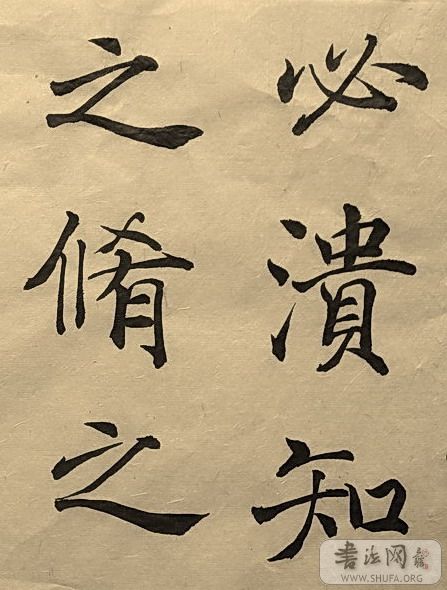 必潰知
之脩之
書法网
WWW.SHUFA.ORG